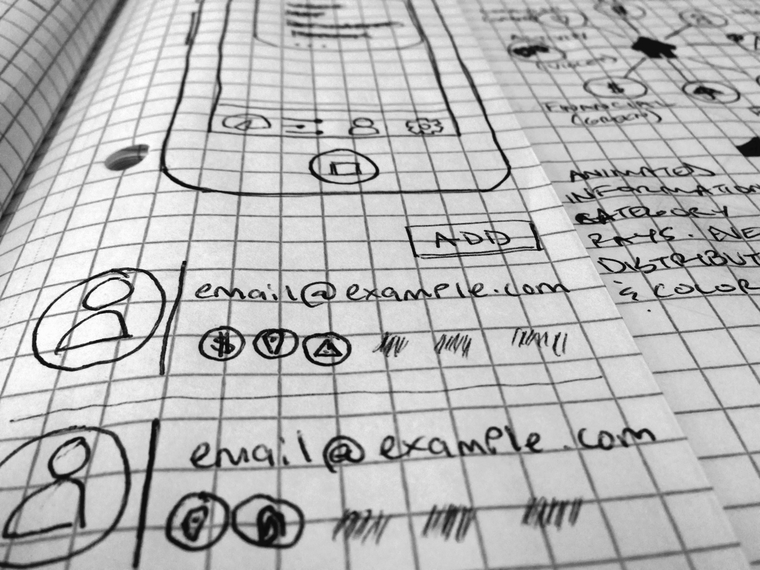 ADD
email@example.com
email@example.com
FINANCIAL
(GREEN)
ANIMATED
INFORMATION
CATEGORY
RAYS. EVE
DISTRIBUT
& COLOR